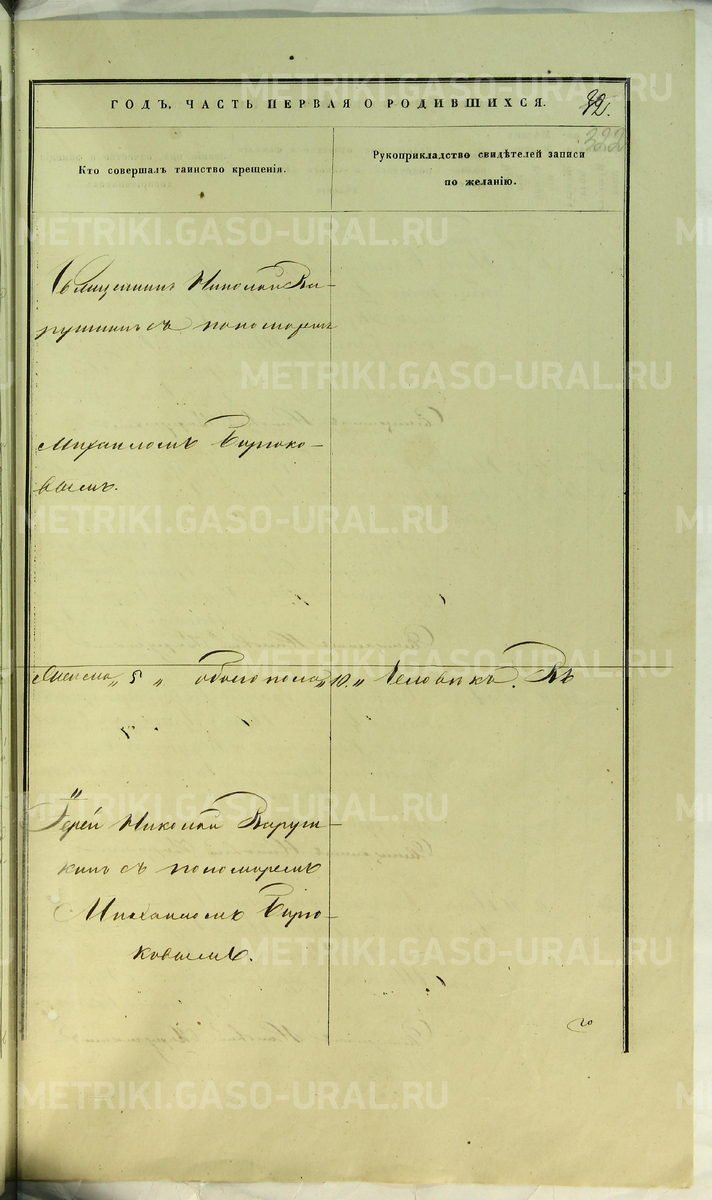 ГОДЪ, ЧАСТЬ ПЕРВАЯ О РОДИВШИХСЯ.
322
Кто совершалъ таинство крещенія.
Рукоприкладство свидѣтелей записи
по желанію.
Священникъ Николай Ва-
рушкинъ съ пономаремъ
Михаиломъ Бирюко-
вымъ.
Женска „ 5 „ обоего пола „ 10. „ Человѣкъ. Въ
Іерей Николай Варуш-
кинъ съ пономаремъ
Михаиломъ Бирю-
ковымъ.
METRIKI.GASO-URAL.RU